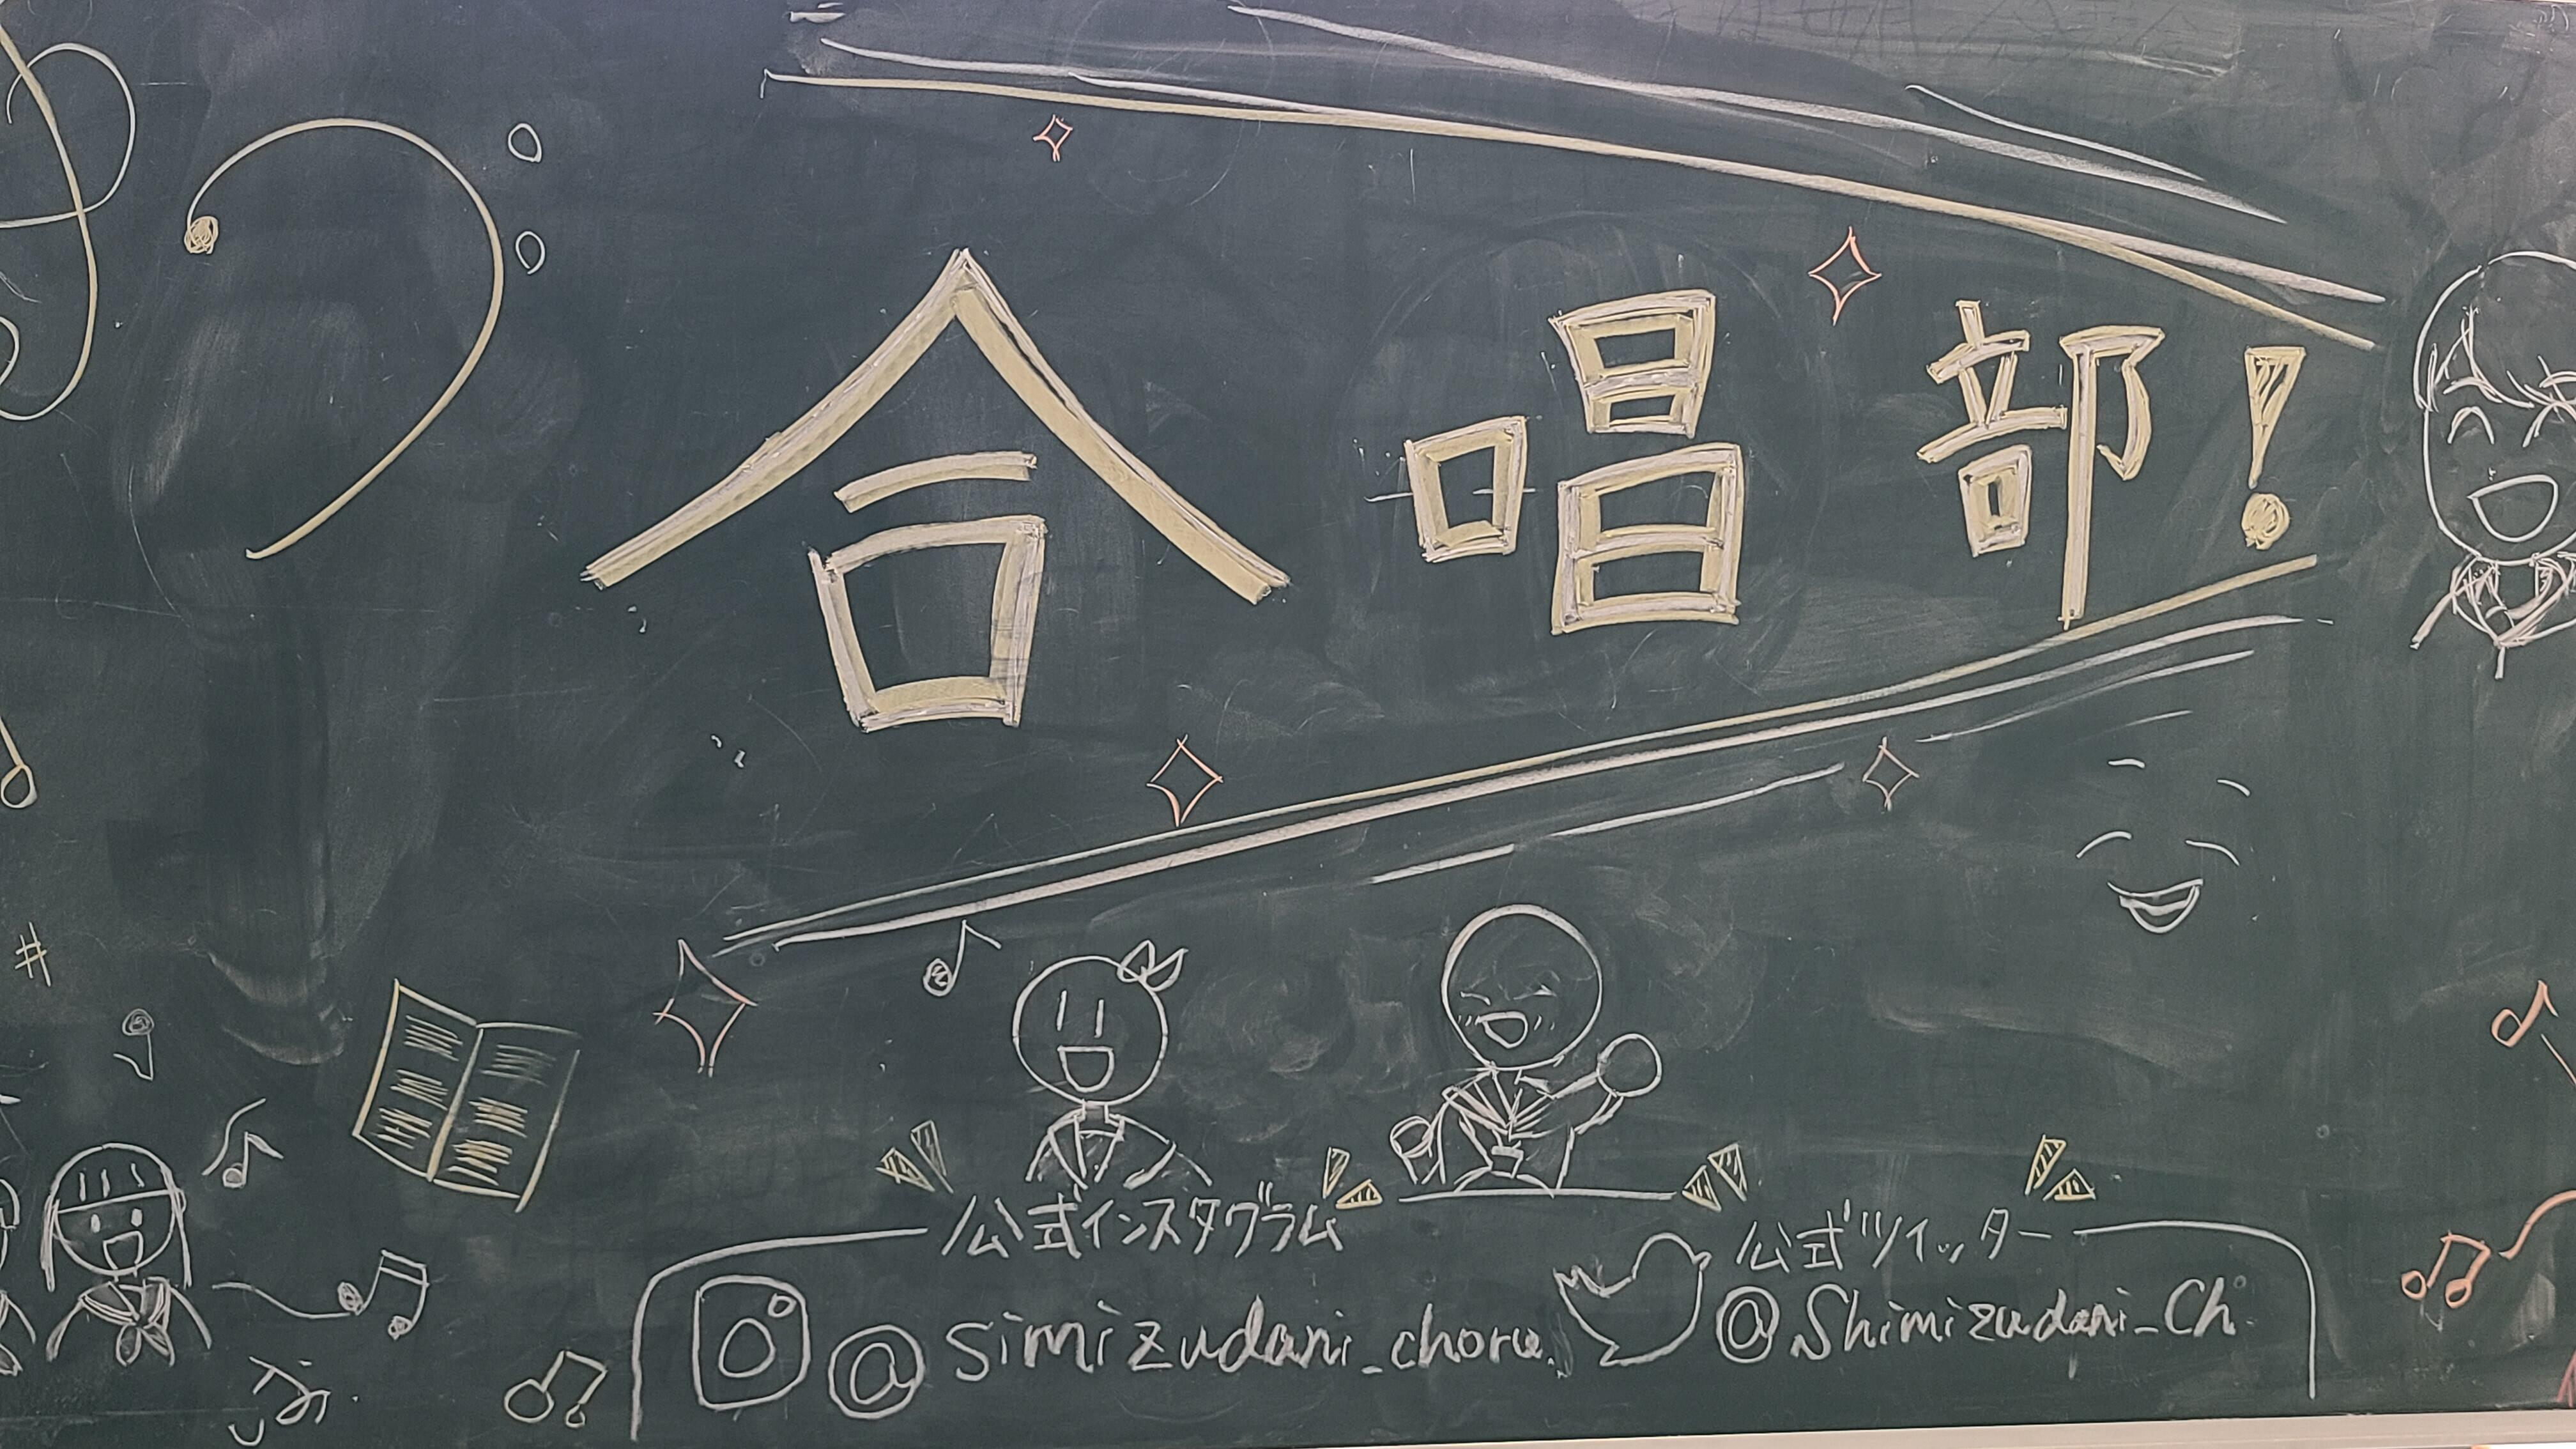 合唱部!
公式インスタグラム
@simizudani_choru
公式ツイッター
@Shimizudani_Ch